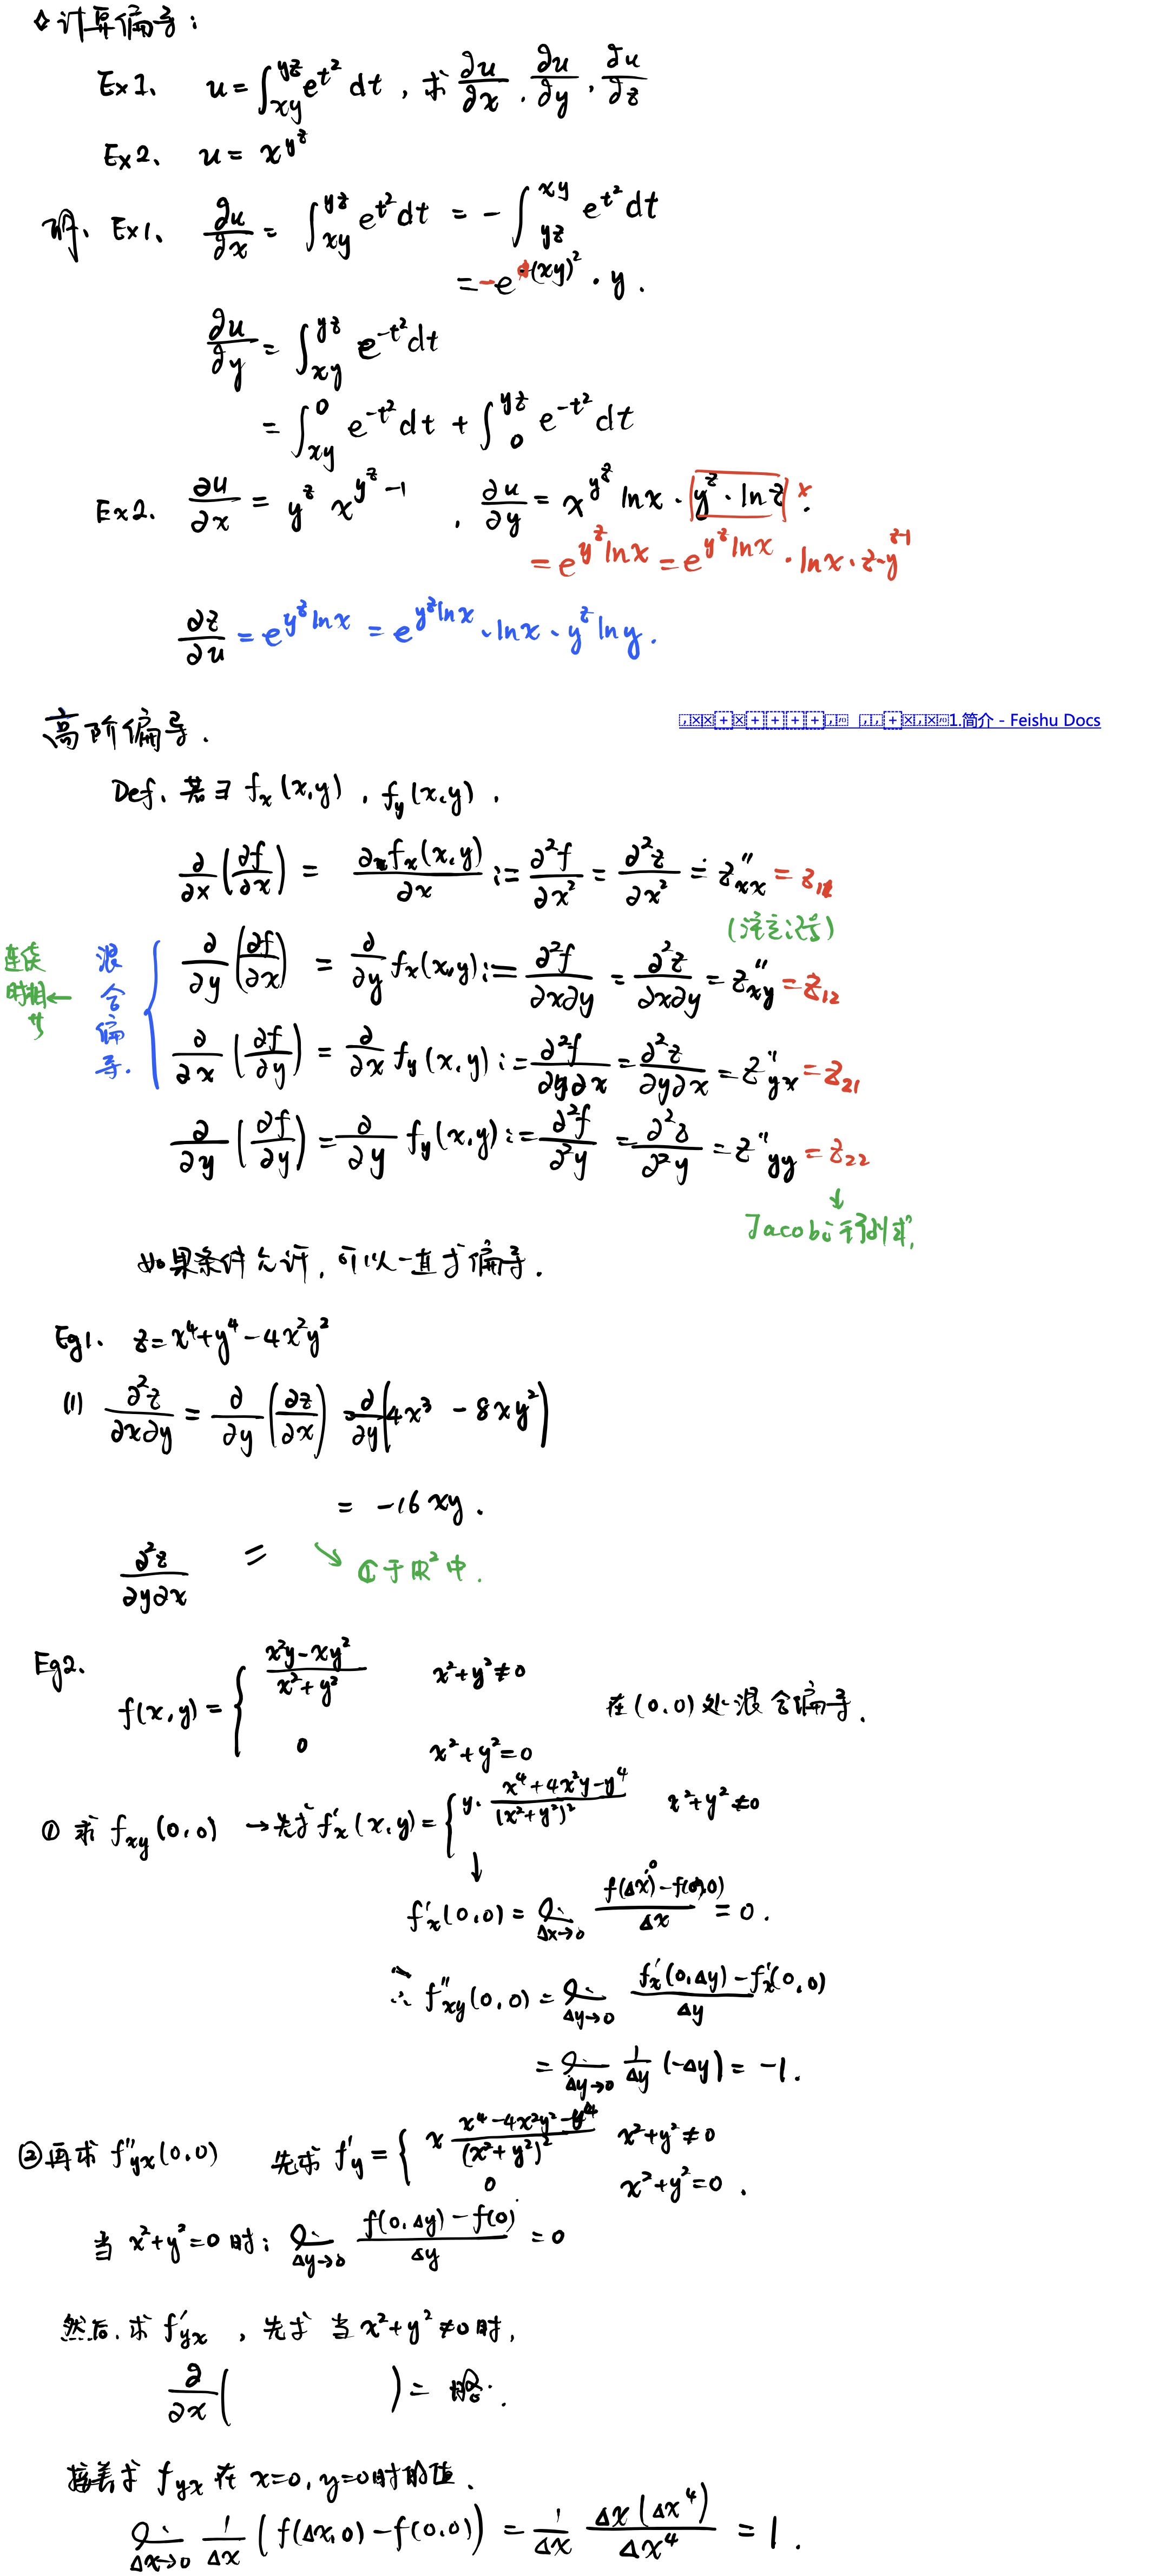 计算偏导：
Ex1、 u = ∫_{xy}^{yz} e^{t²} dt ，求 ∂u/∂x , ∂u/∂y , ∂u/∂z
Ex2、 u = x^{y^z}
解、Ex1、 ∂u/∂x = ∫_{xy}^{yz} e^{t²} dt = - ∫_{yz}^{xy} e^{t²} dt
= -e^{(xy)²} · y .
∂u/∂y = ∫_{xy}^{yz} e^{-t²} dt
= ∫_{xy}^{0} e^{-t²} dt + ∫_{0}^{yz} e^{-t²} dt
Ex2. ∂u/∂x = y^z x^{y^z -1} , ∂u/∂y = x^{y^z} ln x · y^z · ln z × .
= e^{y^z ln x} = e^{y^z ln x} · ln x · z·y^{z-1}
∂z/∂u = e^{y^z ln x} = e^{y^z ln x} · ln x · y^z ln y .
高阶偏导 .
1.简介 - Feishu Docs
Def、若∃ f_x(x,y) , f_y(x,y) ,
∂/∂x (∂f/∂x) = ∂f_x(x,y)/∂x := ∂²f/∂x² = ∂²z/∂x² = z''_{xx} = z_{11}
(注意记号)
∂/∂y (∂f/∂x) = ∂/∂y f_x(x,y) := ∂²f/∂x∂y = ∂²z/∂x∂y = z''_{xy} = z_{12}
连续时相等 ← 混合偏导.
∂/∂x (∂f/∂y) = ∂/∂x f_y(x,y) := ∂²f/∂y∂x = ∂²z/∂y∂x = z''_{yx} = z_{21}
∂/∂y (∂f/∂y) = ∂/∂y f_y(x,y) := ∂²f/∂²y = ∂²z/∂²y = z''_{yy} = z_{22}
↓
Jacobi 行列式,
如果条件允许, 可以一直求偏导 .
Eg1. z = x⁴+y⁴-4x²y²
(1) ∂²z/∂x∂y = ∂/∂y (∂z/∂x) = ∂/∂y (4x³ - 8xy²)
= -16xy .
∂²z/∂y∂x = ↘ ℂ于ℝ²中 .
Eg2. f(x,y) = { (x²y-xy²)/(x²+y²) x²+y²≠0
0 x²+y²=0
在(0,0)处混合偏导 .
① 求 f_{xy}(0,0) →先求 f'_x(x,y) = { y· (x⁴+4x²y-y⁴)/(x²+y²)² x²+y²≠0
↓
f'_x(0,0) = lim_{Δx→0} (f(Δx,0)-f(0,0))/Δx = 0 .
∴ f''_{xy}(0,0) = lim_{Δy→0} (f'_x(0,Δy)-f'_x(0,0))/Δy
= lim_{Δy→0} 1/Δy (-Δy) = -1 .
②再求 f''_{yx}(0,0) 先求 f'_y = { x (x⁴-4x²y²-y⁴)/(x²+y²)² x²+y²≠0
0 x²+y²=0 .
当 x²+y²=0时: lim_{Δy→0} (f(0,Δy)-f(0))/Δy = 0
然后, 求 f'_{yx} , 先求 当 x²+y²≠0时,
∂/∂x ( ) = 略 .
接着求 f_{yx} 在 x=0, y=0时的值 .
lim_{Δx→0} 1/Δx (f(Δx,0)-f(0,0)) = 1/Δx Δx(Δx⁴)/Δx⁴ = 1 .